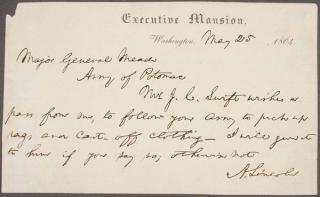 Executive Mansion,
Washington, May 25, 1864
Major General Meade
Army of Potomac
Mr J. C. Swift wishes a
pass from me, to follow your army to pick up
rags and cast-off clothing— I will give it
to him if you say so, otherwise not
A. Lincoln